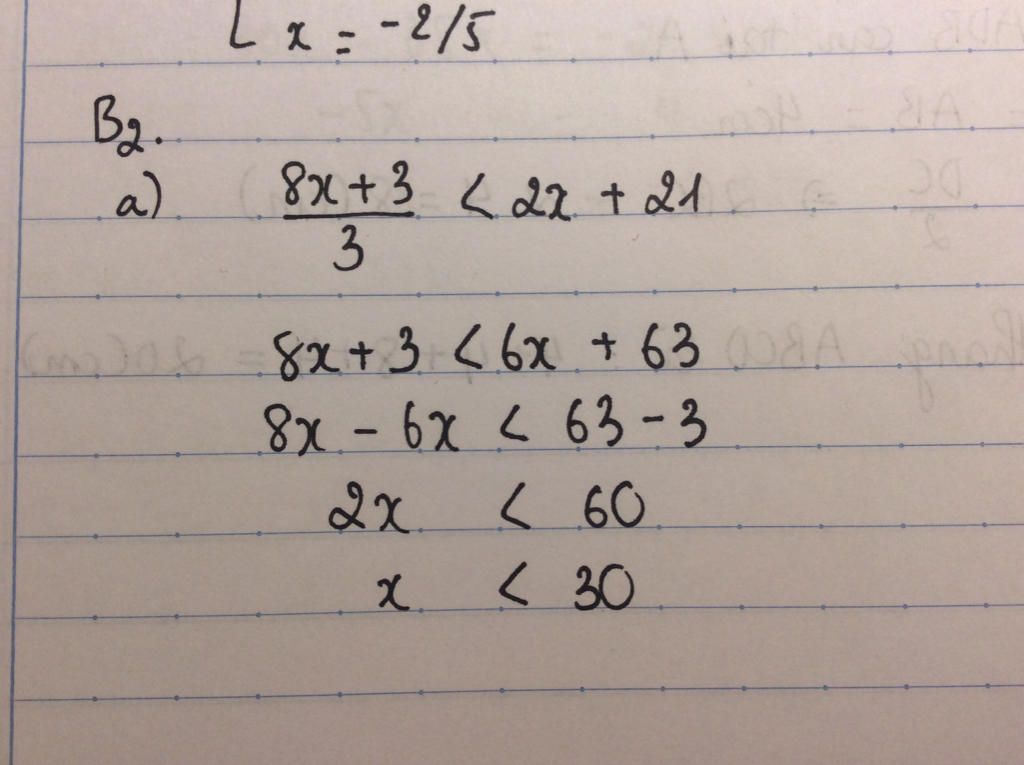 [ x = -2/5
B2.
a) (8x + 3)/3 < 2x + 21
8x + 3 < 6x + 63
8x - 6x < 63 - 3
2x < 60
x < 30